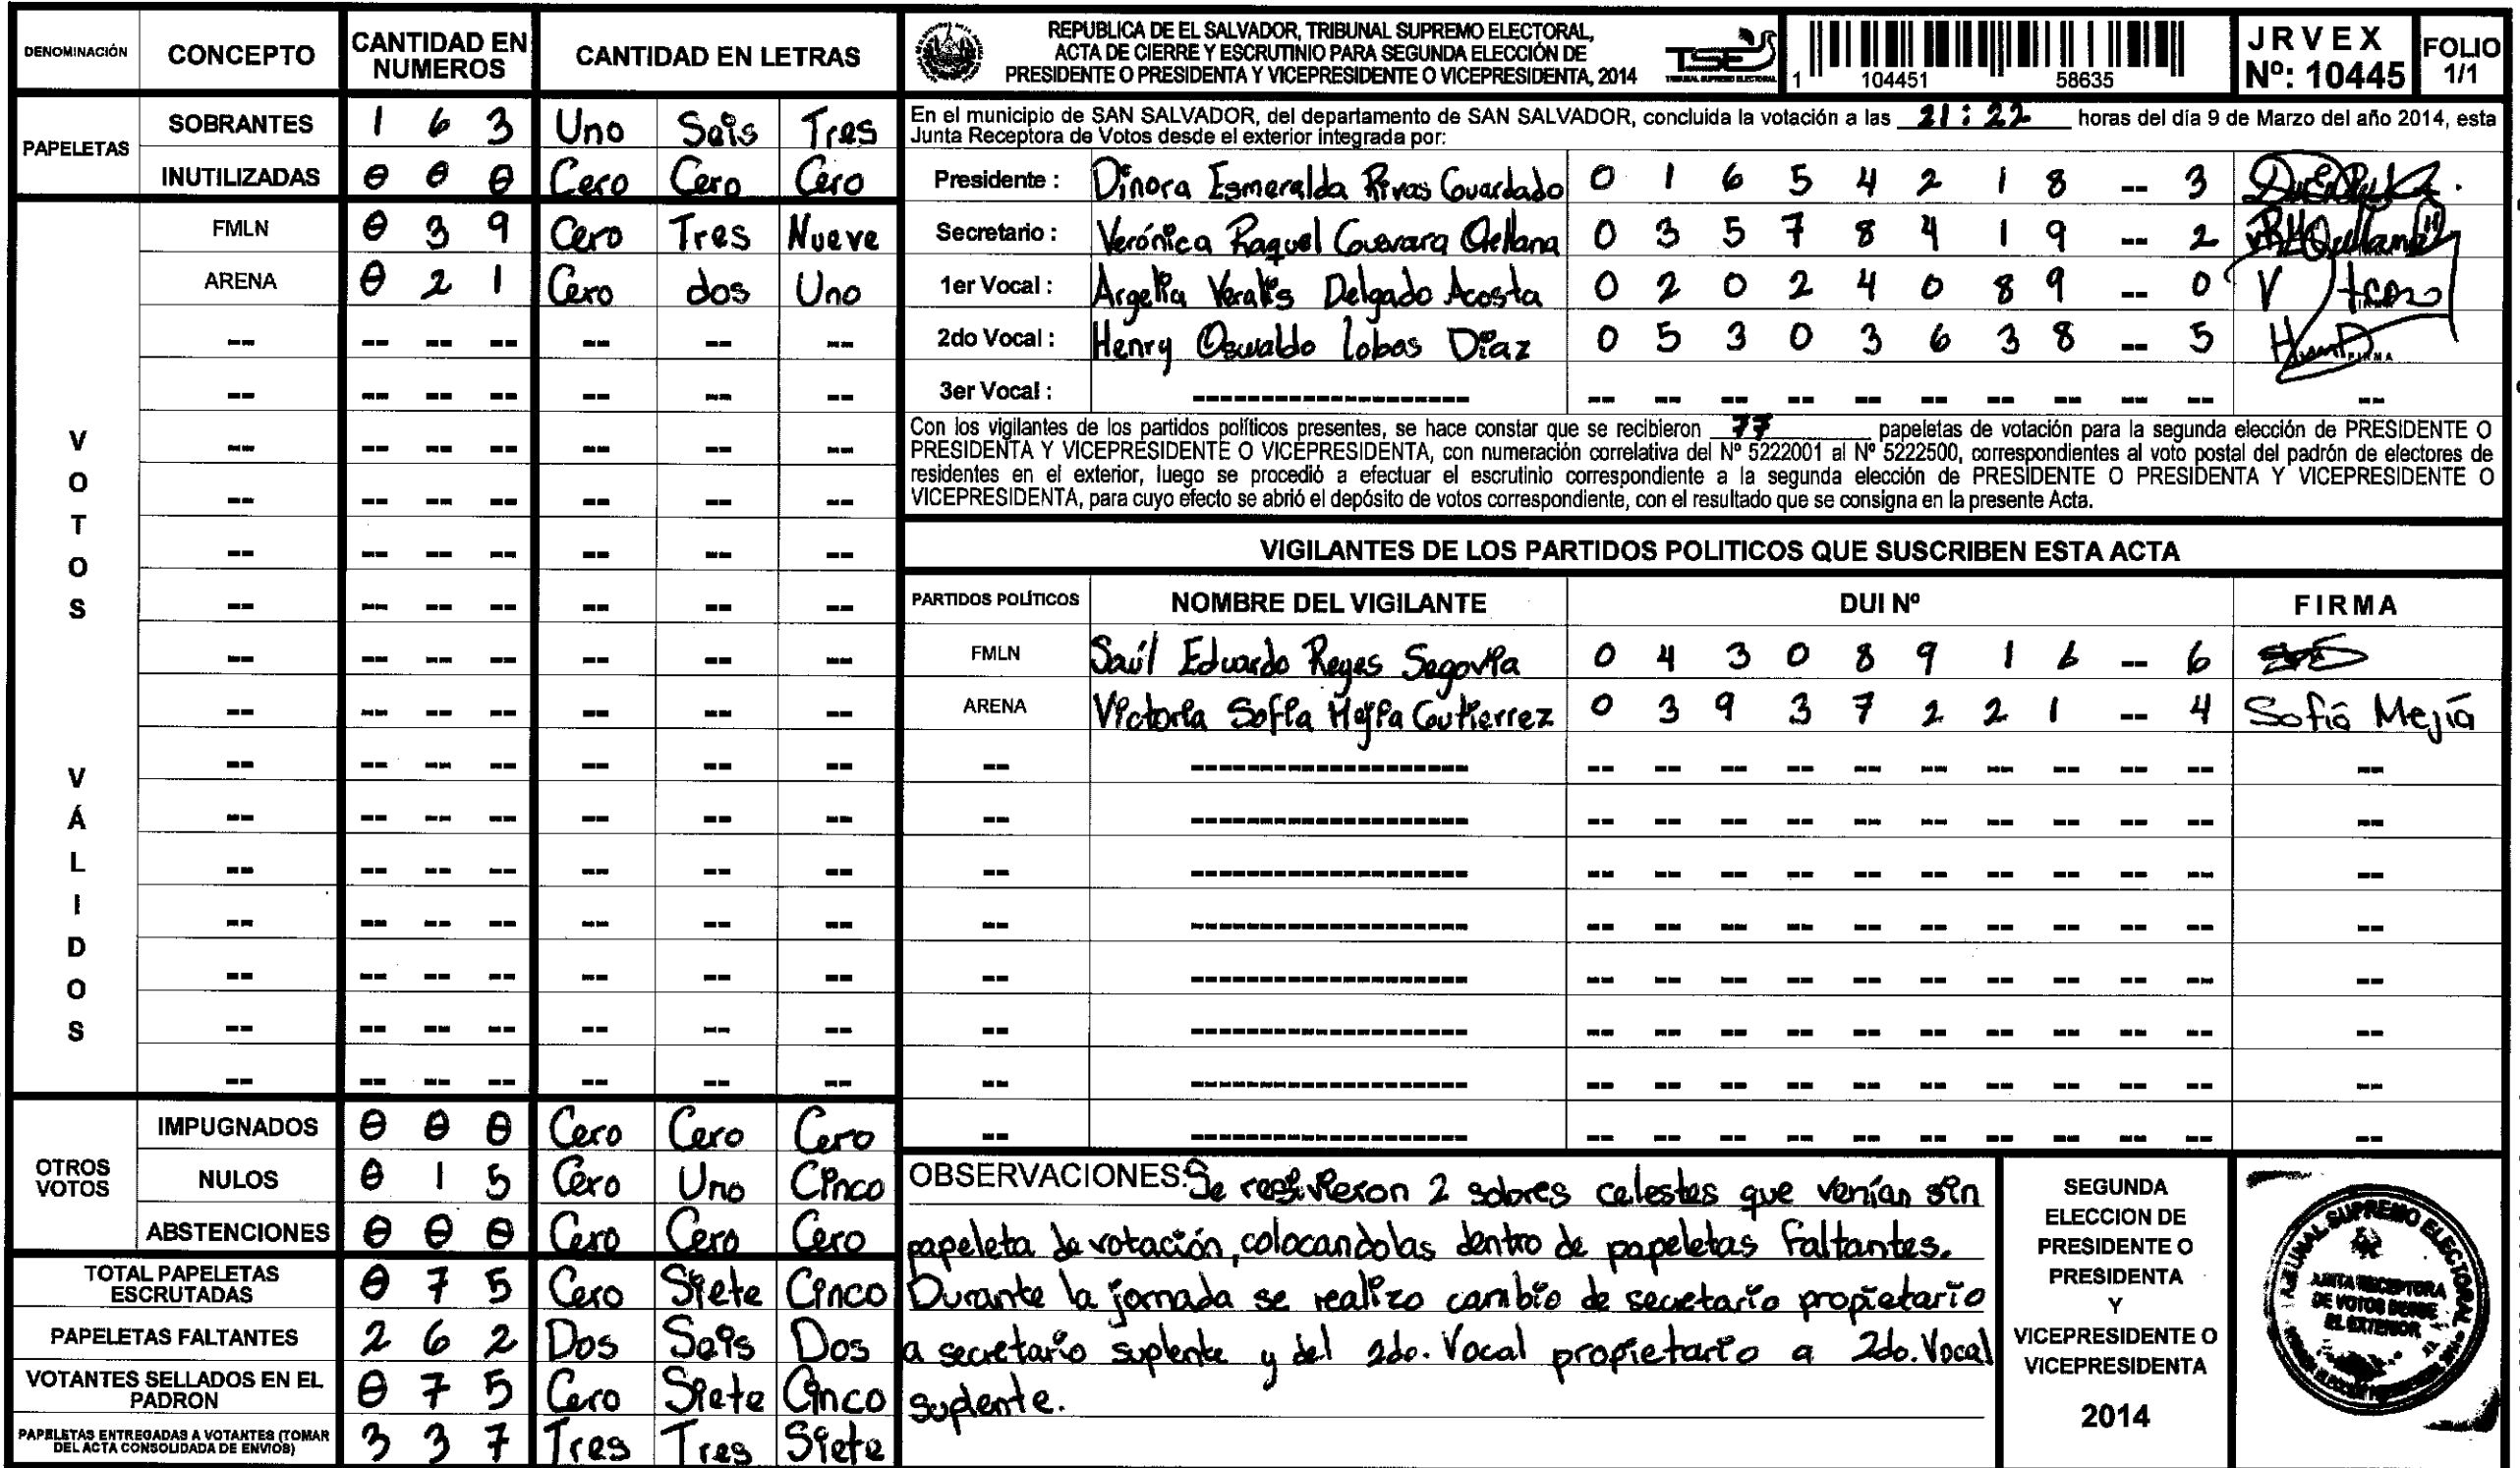 DENOMINACIÓN CONCEPTO CANTIDAD EN NUMEROS CANTIDAD EN LETRAS
PAPELETAS
SOBRANTES 1 6 3 Uno Seis Tres
INUTILIZADAS 0 0 0 Cero Cero Cero
VOTOS VÁLIDOS
FMLN 0 3 9 Cero Tres Nueve
ARENA 0 2 1 Cero dos Uno
OTROS VOTOS
IMPUGNADOS 0 0 0 Cero Cero Cero
NULOS 0 1 5 Cero Uno Cinco
ABSTENCIONES 0 0 0 Cero Cero Cero
TOTAL PAPELETAS ESCRUTADAS 0 7 5 Cero Siete Cinco
PAPELETAS FALTANTES 2 6 2 Dos Seis Dos
VOTANTES SELLADOS EN EL PADRON 0 7 5 Cero Siete Cinco
PAPELETAS ENTREGADAS A VOTANTES (TOMAR DEL ACTA CONSOLIDADA DE ENVIOS) 3 3 7 Tres Tres Siete
REPUBLICA DE EL SALVADOR, TRIBUNAL SUPREMO ELECTORAL,
ACTA DE CIERRE Y ESCRUTINIO PARA SEGUNDA ELECCIÓN DE
PRESIDENTE O PRESIDENTA Y VICEPRESIDENTE O VICEPRESIDENTA, 2014
TSE
TRIBUNAL SUPREMO ELECTORAL
1 104451 58635
JRVEX
Nº: 10445
FOLIO
1/1
En el municipio de SAN SALVADOR, del departamento de SAN SALVADOR, concluida la votación a las 21:22 horas del día 9 de Marzo del año 2014, esta
Junta Receptora de Votos desde el exterior integrada por:
Presidente : Dinora Esmeralda Rivas Guardado 0 1 6 5 4 2 1 8 -- 3
Secretario : Verónica Raquel Guevara Orellana 0 3 5 7 8 4 1 9 -- 2
1er Vocal : Argelia Veralis Delgado Acosta 0 2 0 2 4 0 8 9 -- 0
2do Vocal : Henry Oswaldo Lobos Diaz 0 5 3 0 3 6 3 8 -- 5
FIRMA
3er Vocal :
Con los vigilantes de los partidos políticos presentes, se hace constar que se recibieron 77 papeletas de votación para la segunda elección de PRESIDENTE O
PRESIDENTA Y VICEPRESIDENTE O VICEPRESIDENTA, con numeración correlativa del Nº 5222001 al Nº 5222500, correspondientes al voto postal del padrón de electores de
residentes en el exterior, luego se procedió a efectuar el escrutinio correspondiente a la segunda elección de PRESIDENTE O PRESIDENTA Y VICEPRESIDENTE O
VICEPRESIDENTA, para cuyo efecto se abrió el depósito de votos correspondiente, con el resultado que se consigna en la presente Acta.
VIGILANTES DE LOS PARTIDOS POLITICOS QUE SUSCRIBEN ESTA ACTA
PARTIDOS POLÍTICOS NOMBRE DEL VIGILANTE DUI Nº FIRMA
FMLN Saúl Eduardo Reyes Segovia 0 4 3 0 8 9 1 6 -- 6
ARENA Victoria Sofia Mejia Gutierrez 0 3 9 3 7 2 2 1 -- 4 Sofia Mejía
OBSERVACIONES: Se recivieron 2 sobres celestes que venían sin
papeleta de votación, colocandolas dentro de papeletas faltantes.
Durante la jornada se realizo cambio de secretario propietario
a secretario suplente y del 2do. Vocal propietario a 2do. Vocal
suplente.
SEGUNDA
ELECCION DE
PRESIDENTE O
PRESIDENTA
Y
VICEPRESIDENTE O
VICEPRESIDENTA
2014
TRIBUNAL SUPREMO ELECTORAL
JUNTA RECEPTORA
DE VOTOS DESDE
EL EXTERIOR